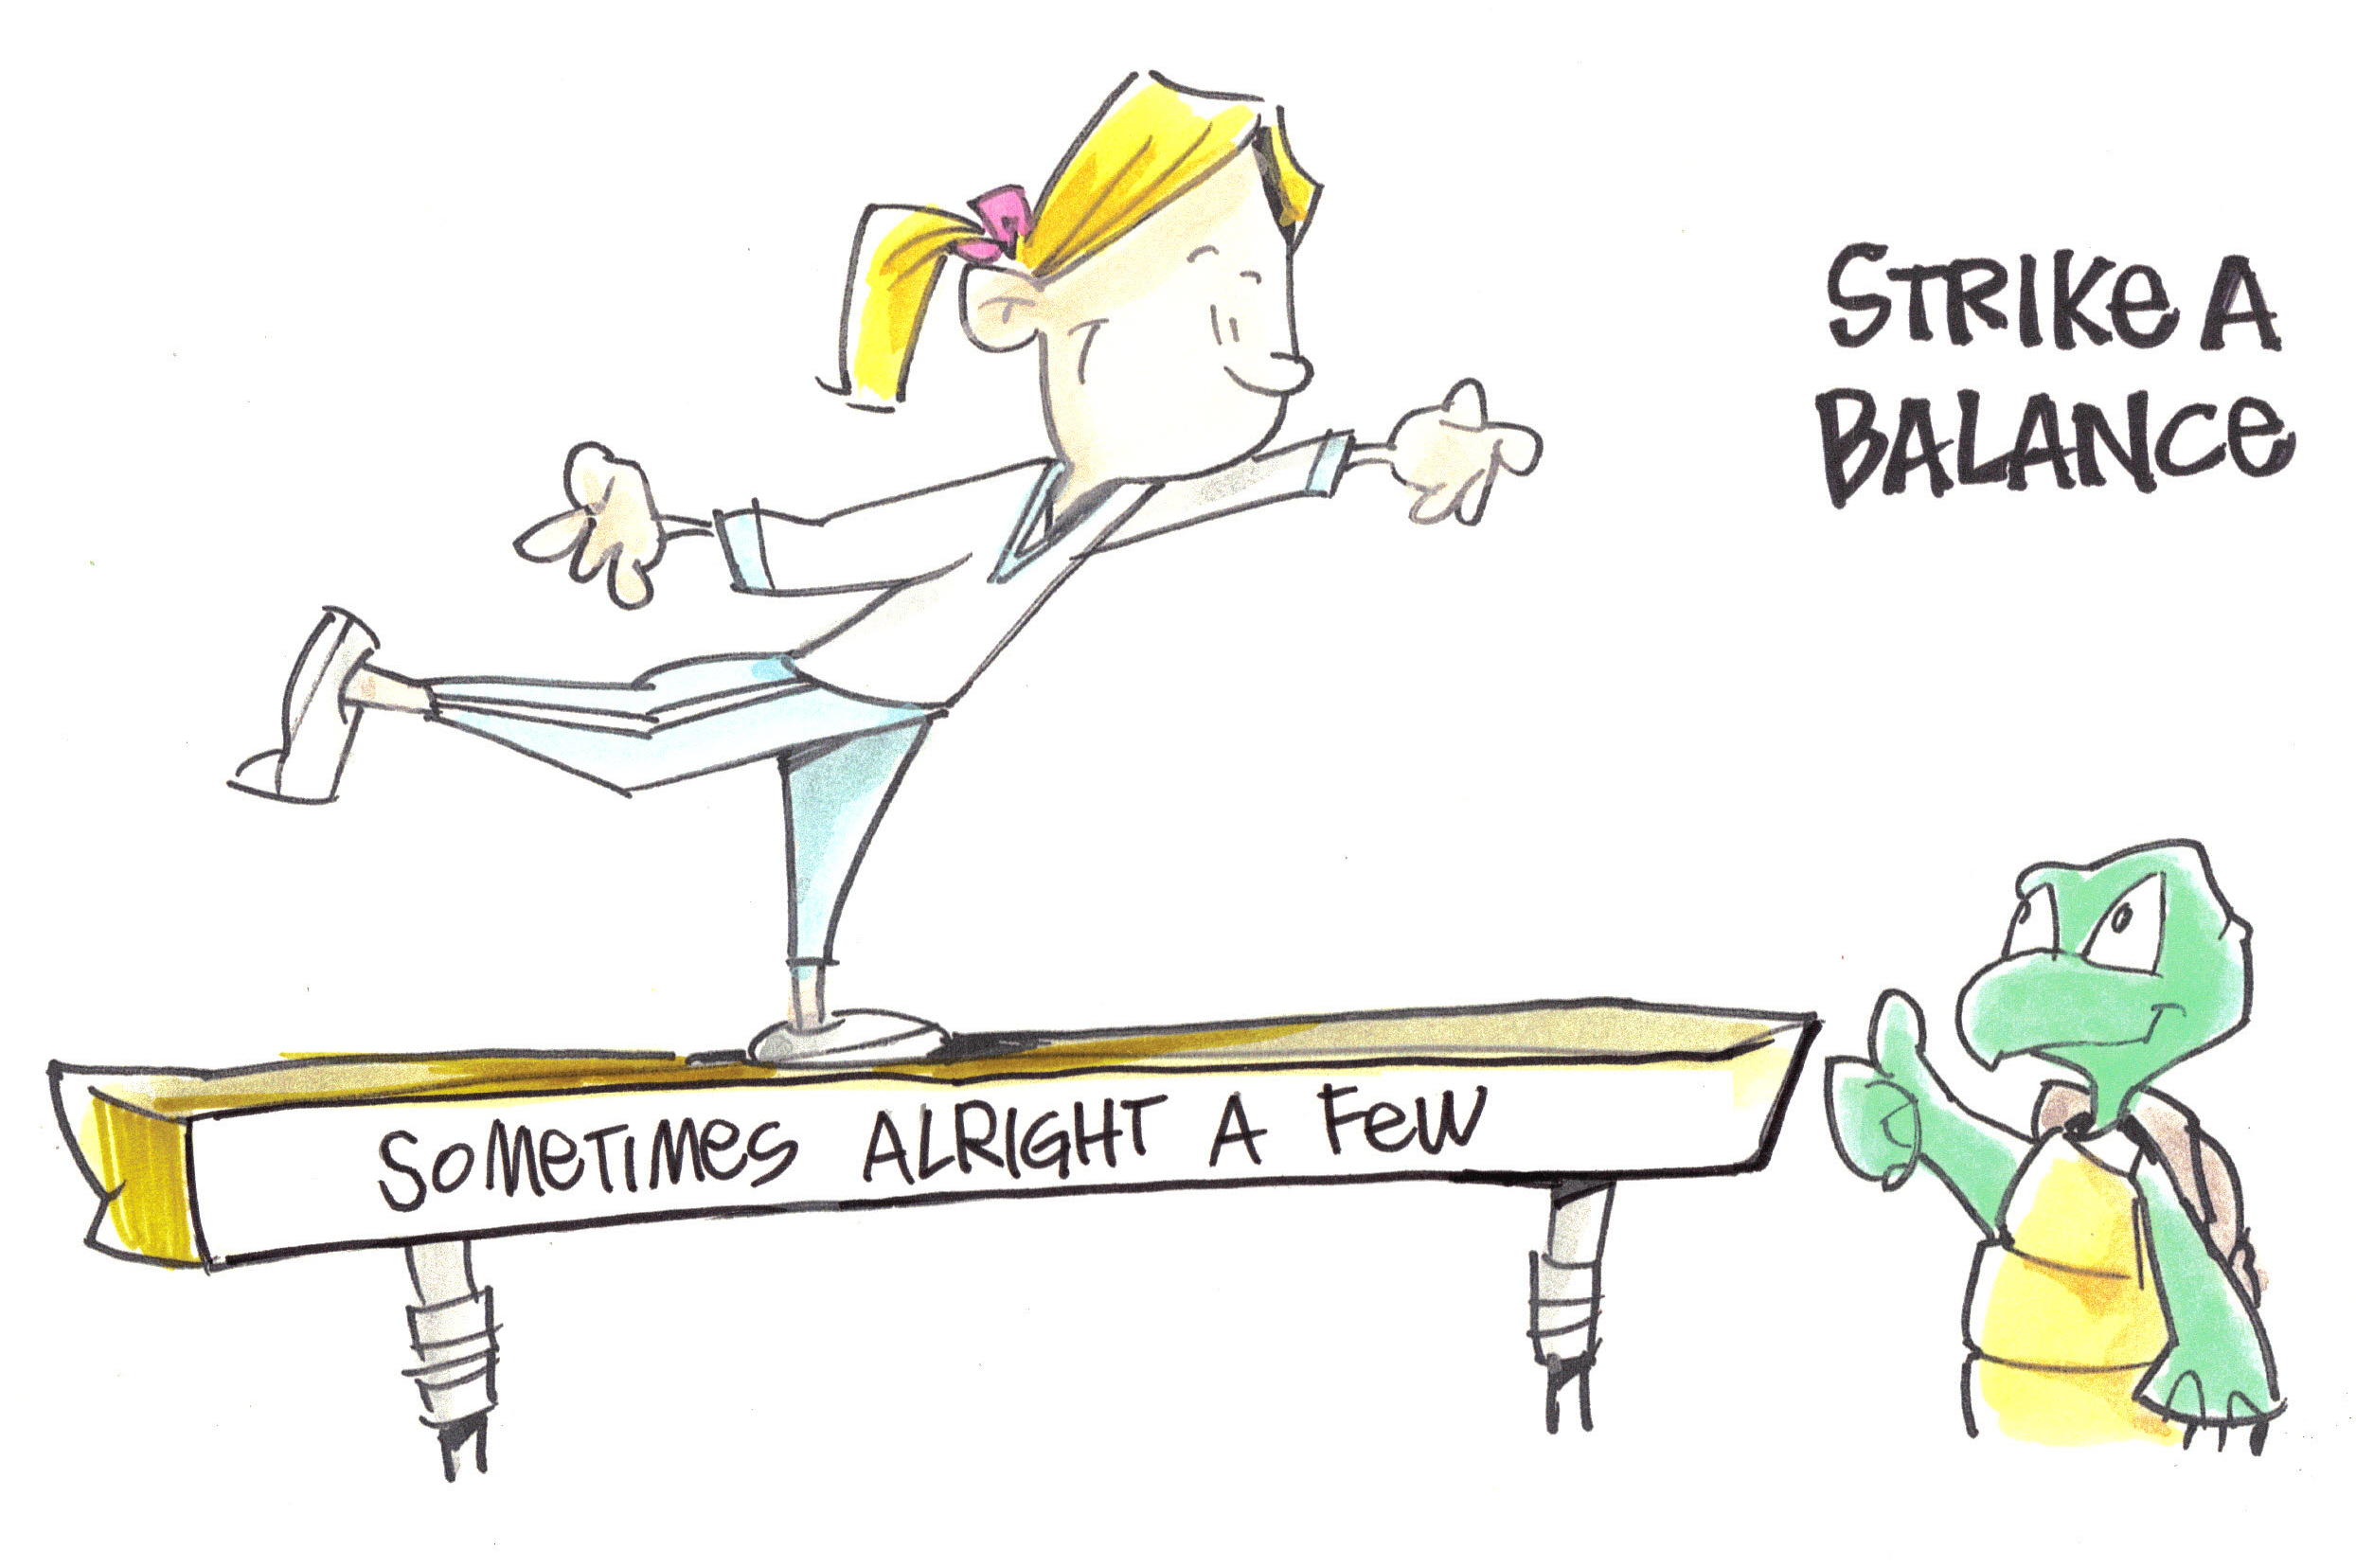 STRIKE A
BALANCE
SOMETIMES ALRIGHT A FEW